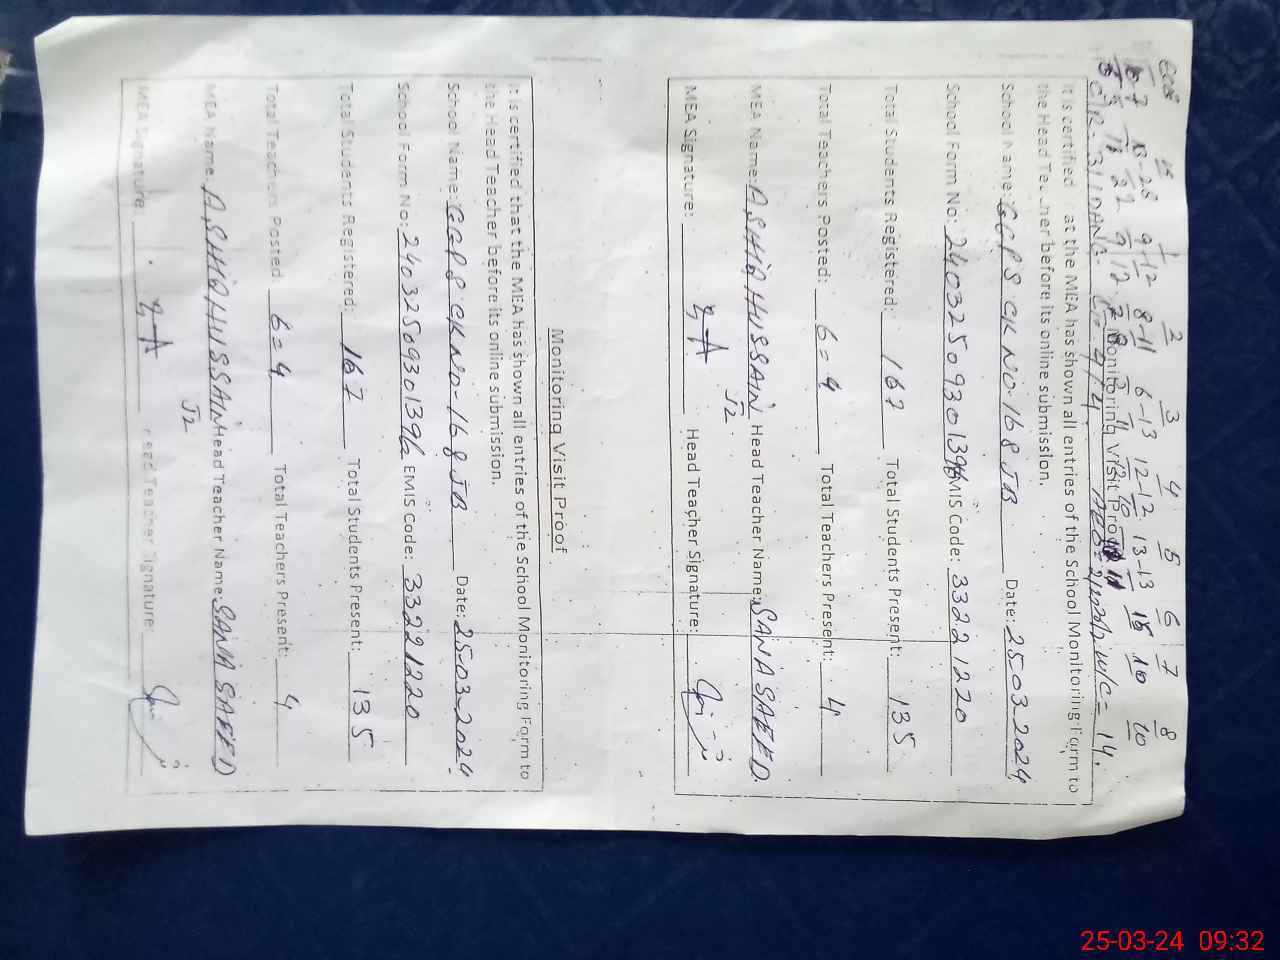 1 2 3 4 5 6 7 8
9-12 8-11 6-13 12-12 13-13 15 10 10
Monitoring Visit Proof
It is certified at the MEA has shown all entries of the School Monitoring Form to
the Head Teacher before its online submission.
School Name: GGPS CK NO-168 JB Date: 25-03-2024
School Form No: 2403250930139 EMIS Code: 33221220
Total Students Registered: 167 Total Students Present: 135
Total Teachers Posted: 6=4 Total Teachers Present: 4
MEA Name: ASHIQ HUSSAIN Head Teacher Name: SANA SAEED
J2
MEA Signature: Head Teacher Signature:
Monitoring Visit Proof
It is certified that the MEA has shown all entries of the School Monitoring Form to
the Head Teacher before its online submission.
School Name: GGPS CK NO-168 JB Date: 25-03-2024
School Form No: 24032509301396 EMIS Code: 33221220
Total Students Registered: 167 Total Students Present: 135
Total Teachers Posted: 6=4 Total Teachers Present: 4
MEA Name: ASHIQ HUSSAIN Head Teacher Name: SANA SAEED
J2
MEA Signature: Head Teacher Signature:
25-03-24 09:32